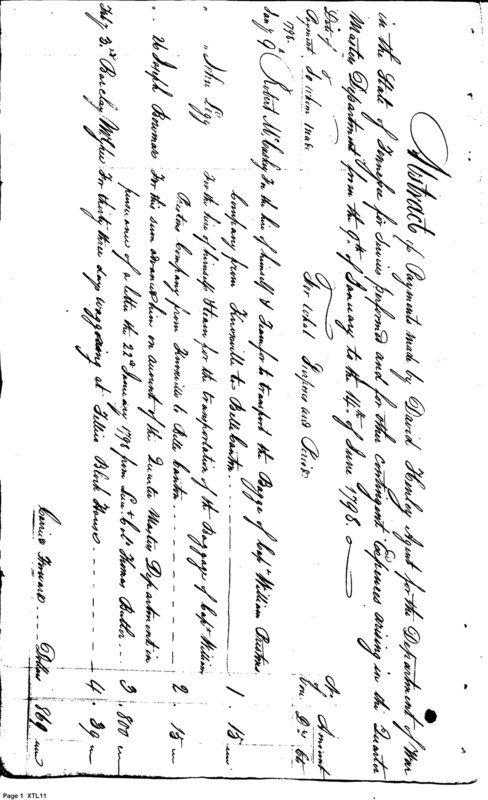 Abstract of Payments made by David Henley Agent for the Department of War
in the State of Tennessee for Services performed and for other Contingent Expenses arising in the Quarter
Master Department from the 9th of January to the 14th of June 1798.
Date of Payment To whom made For what Purpose and Period No. of Vou. Amount Drs. Cts
1798.
Jany 9th Robert McCauly For the hire of himself & Team for to transport the Baggage of Capt William Prestons
Company from Knoxville to Bellecanton 1. 15
" " John Legg For the hire of himself & team for the transportation of the Baggage of Capt William
Prestons Company from Knoxville to Belle Canton 2. 15
" 26 Joseph Bowman For the sum advanced him on account of the Quarter Master Department in
pursuance of a letter the 22d January 1798 from Lieut Colo Thomas Butler 3. 800
Feby 3rd Barclay McGhee For thirty three days waggoning at Tellico Block House 4. 39
Carried Forward Dollars 869
Page 1 XTL11